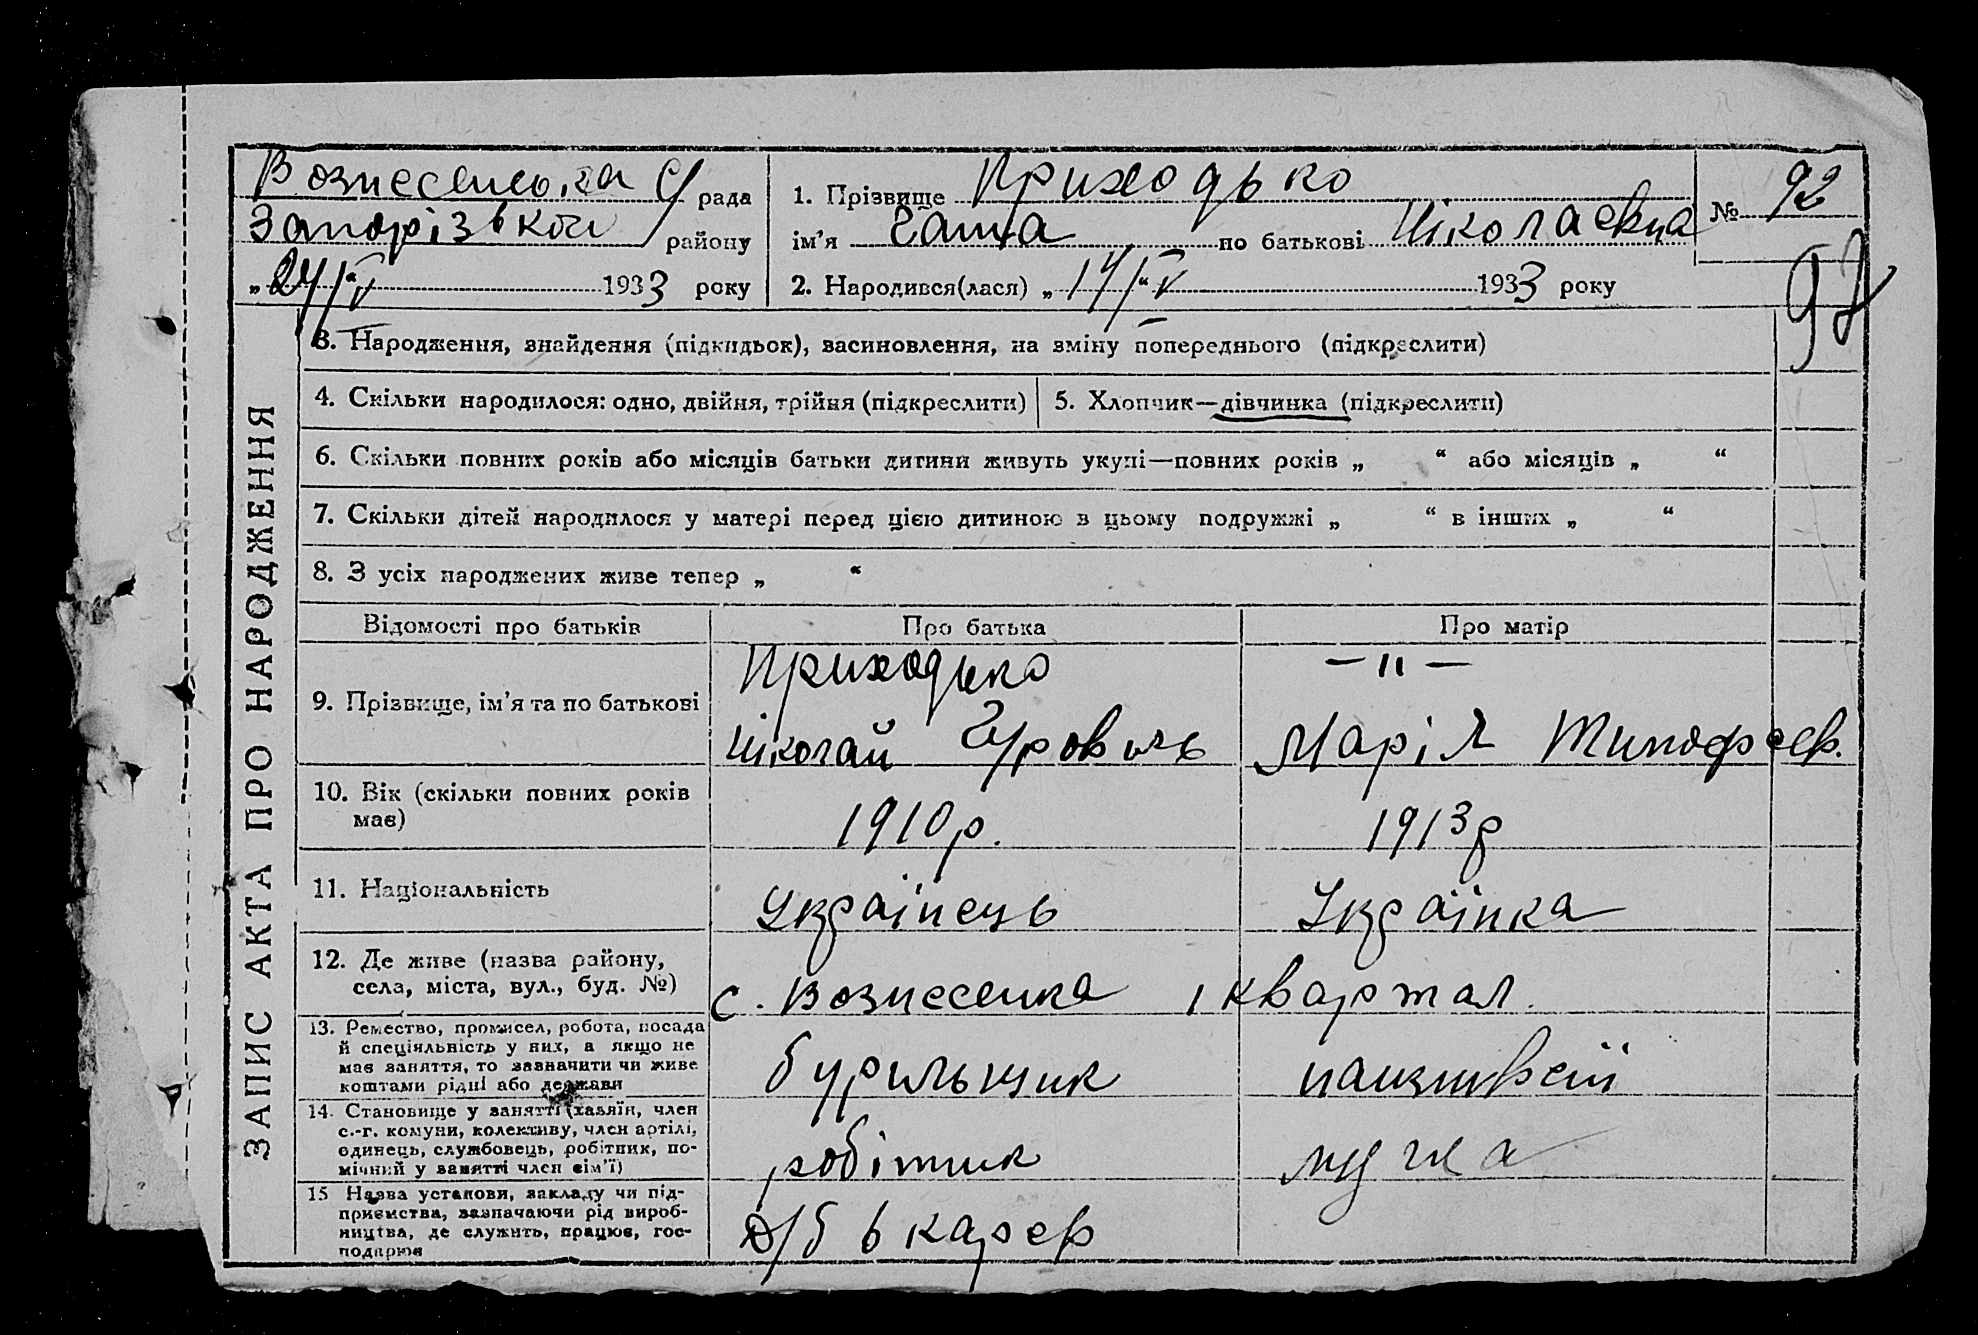 Вознесенська с/рада
Запорізького району
„24/IV“ 1933 року
1. Прізвище Приходько
ім’я Галина по батькові Ніколаевна
2. Народився(лася) „14/IV“ 1933 року
№ 92
97
ЗАПИС АКТА ПРО НАРОДЖЕННЯ
3. Народження, знайдення (підкидьок), засиновлення, на зміну попереднього (підкреслити)
4. Скільки народилося: одно, двійня, трійня (підкреслити)
5. Хлопчик—дівчинка (підкреслити)
6. Скільки повних років або місяців батьки дитини живуть укупі—повних років „ “ або місяців „ “
7. Скільки дітей народилося у матері перед цією дитиною в цьому подружжі „ “ в інших „ “
8. З усіх народжених живе тепер „ “
Відомості про батьків
Про батька
Про матір
9. Прізвище, ім’я та по батькові
Приходько
Ніколай Гурович
— 〃 —
Марія Тимофеев.
10. Вік (скільки повних років
має)
1910р.
1913р
11. Національність
Українець
Українка
12. Де живе (назва району,
села, міста, вул., буд. №)
с. Вознесенка 1 квартал.
13. Ремество, промисел, робота, посада
й спеціяльність у них, а якщо не
має заняття, то зазначити чи живе
коштами рідні або держави
бурильщик
14. Становище у занятті (хазяїн, член
с.-г. комуни, колективу, член артілі,
одинець, службовець, робітник, по-
мічний у занятті член сім’ї)
робітник
мужа
15 Назва установи, закладу чи під-
приємства, зазначаючи рід вироб-
ництва, де служить, працює, гос-
подарює
Д/б карер